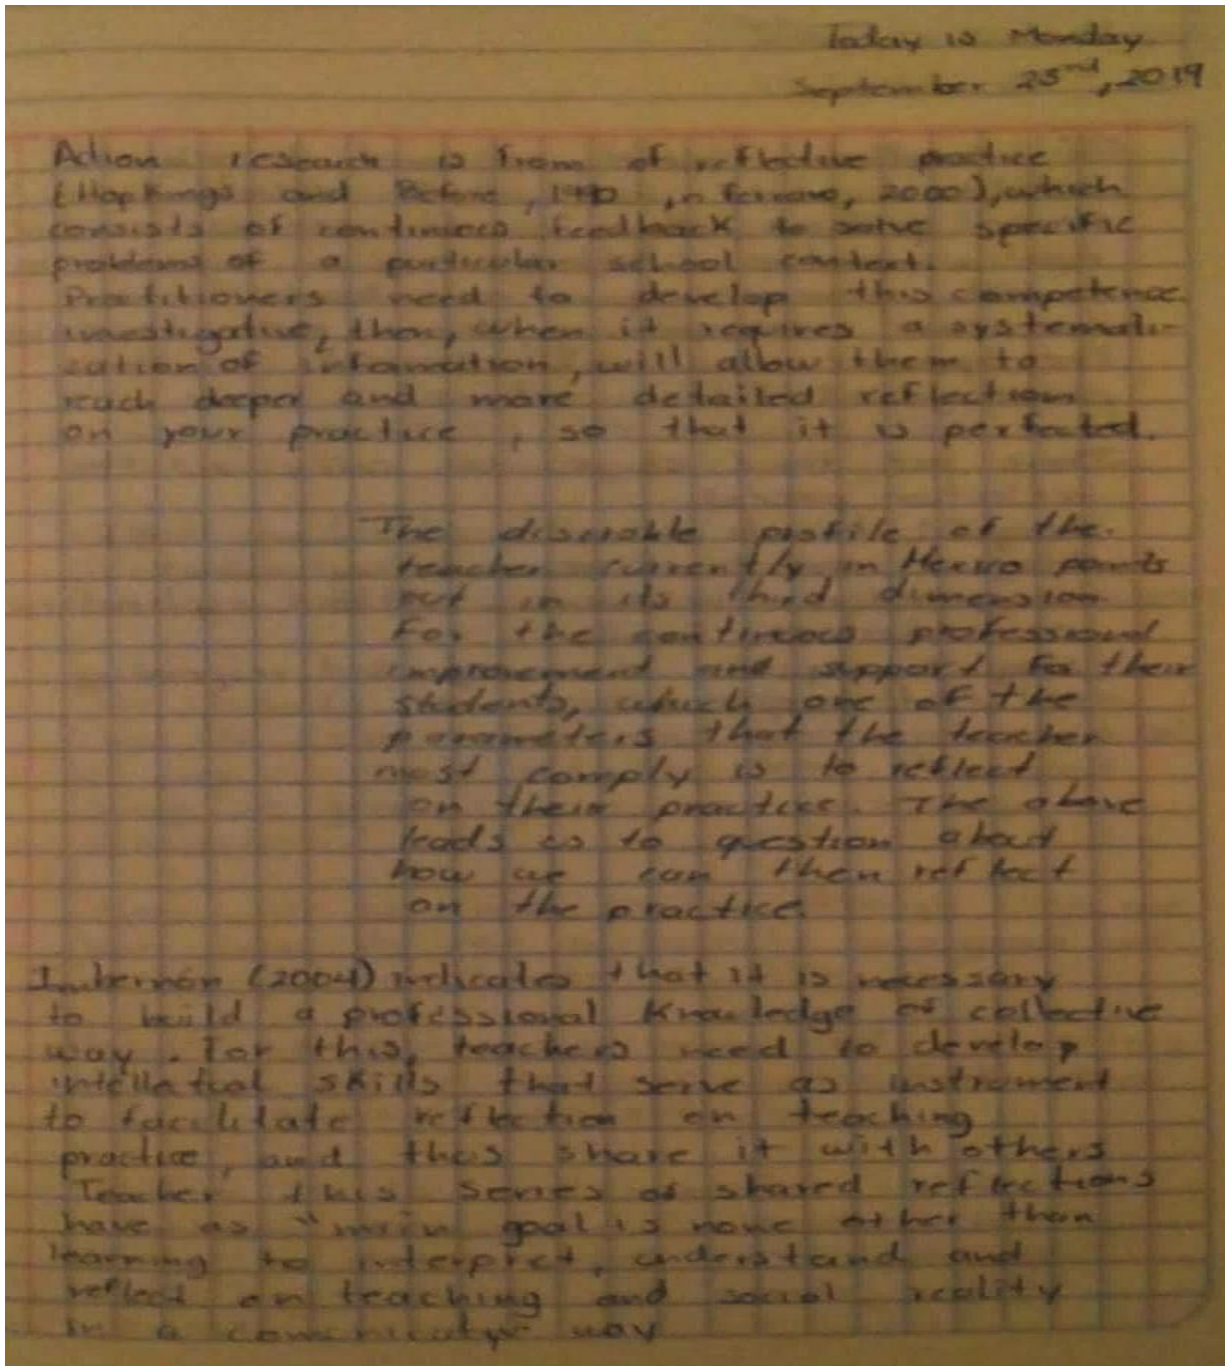 Today is Monday
September 23nd, 2019
Action research is from of reflective practice
(Hopkings and Before, 1990, in Ferraro, 2000), which
consists of continuous feedback to solve specific
problems of a particular school context.
Practitioners need to develop this competence
investigative, then, when it requires a systemati-
zation of information, will allow them to
reach deeper and more detailed reflection
on your practice, so that it is perfected.
The diserable profile of the
teacher currently in Mexico points
out in its third dimension
For the continuous professional
improvement and support for their
students, which one of the
parameters that the teacher
most comply is to reflect
on their practice. The above
leads us to question about
how we can then reflect
on the practice.
Imbernón (2004) indicates that it is necessary
to build a professional Knowledge of collective
way. For this, teachers need to develop
intellectual skills that serve as instrument
to facilitate reflection on teaching
practice, and thus share it with others
Teacher this series of shared reflections
have as "main goal is none other than
learning to interpret, understand and
reflect on teaching and social reality
in a way